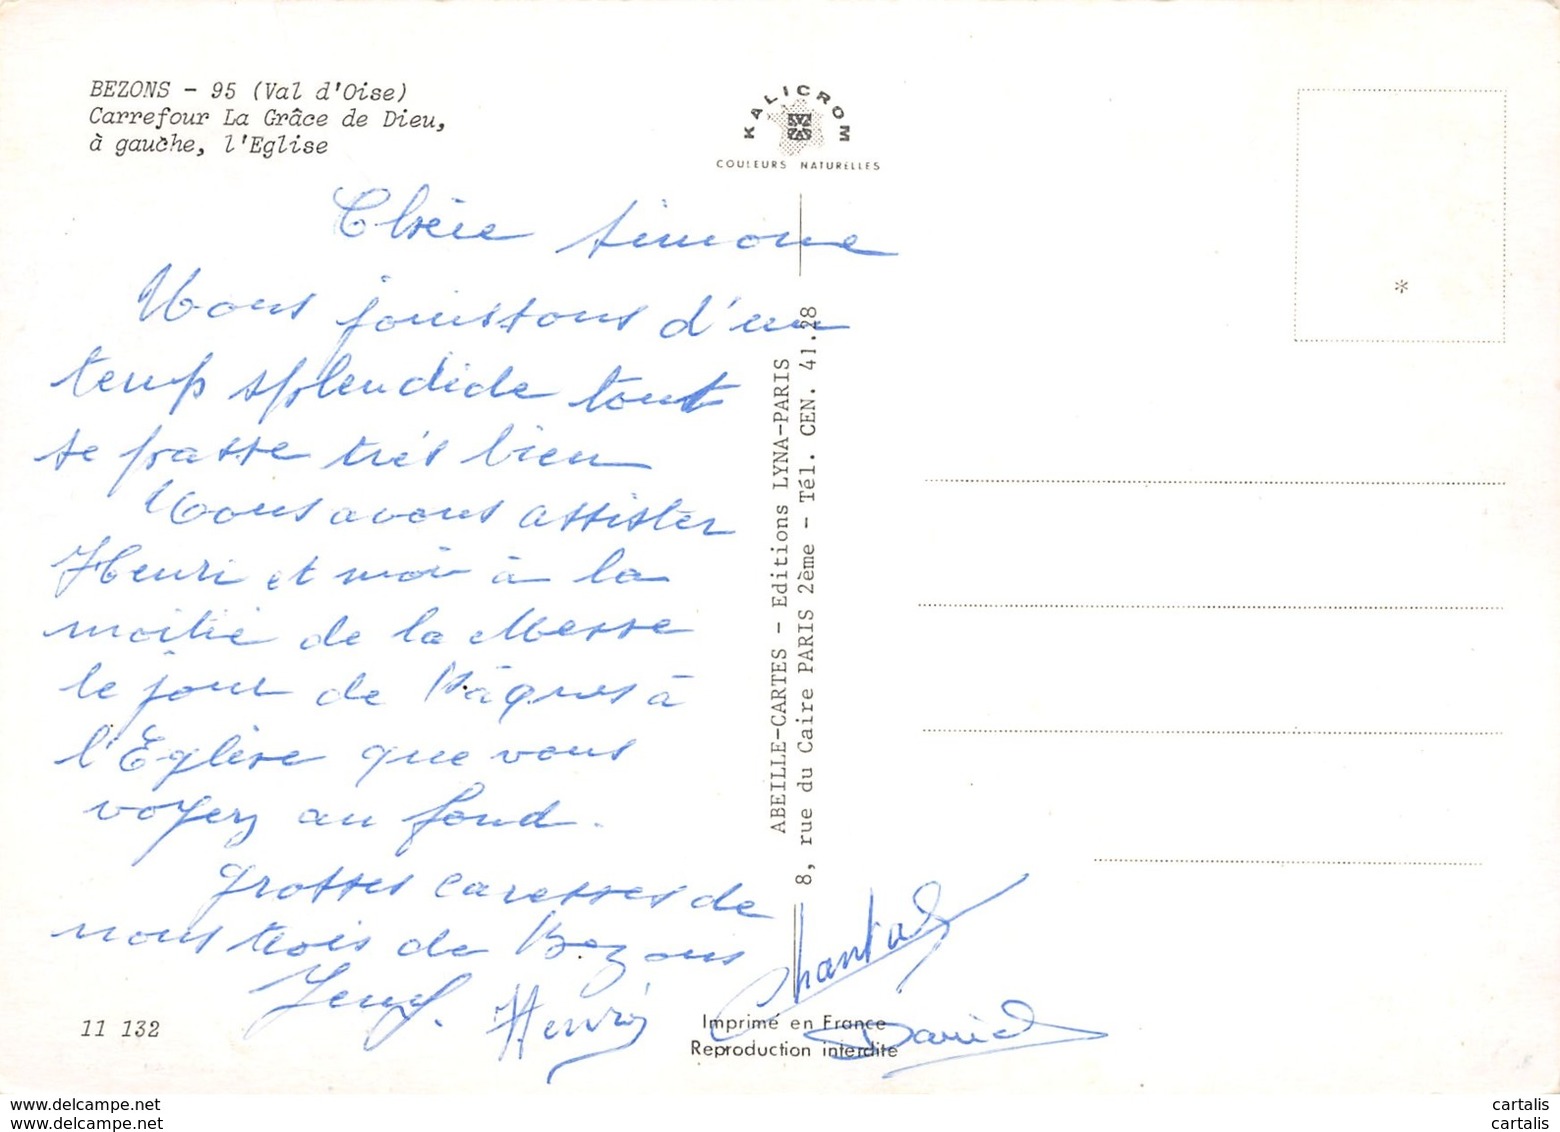 BEZONS - 95 (Val d'Oise)
Carrefour La Grâce de Dieu,
à gauche, l'Eglise
KALICROM
COULEURS NATURELLES
Chère Simone
Nous jouissons d'un
temps splendide tout
se passe très bien
Nous avons assister
Henri et moi à la
moitié de la Messe
le jour de Pâques à
l'Eglise que vous
voyez au fond.
grosses caresses de
nous trois de Bezons
Henri
Chantal
Daniel
ABEILLE-CARTES - Editions LYNA-PARIS
8, rue du Caire PARIS 2ème - Tél. CEN. 41.28
*
11 132
Imprimé en France
Reproduction interdite
www.delcampe.net
www.delcampe.net
cartalis
cartalis